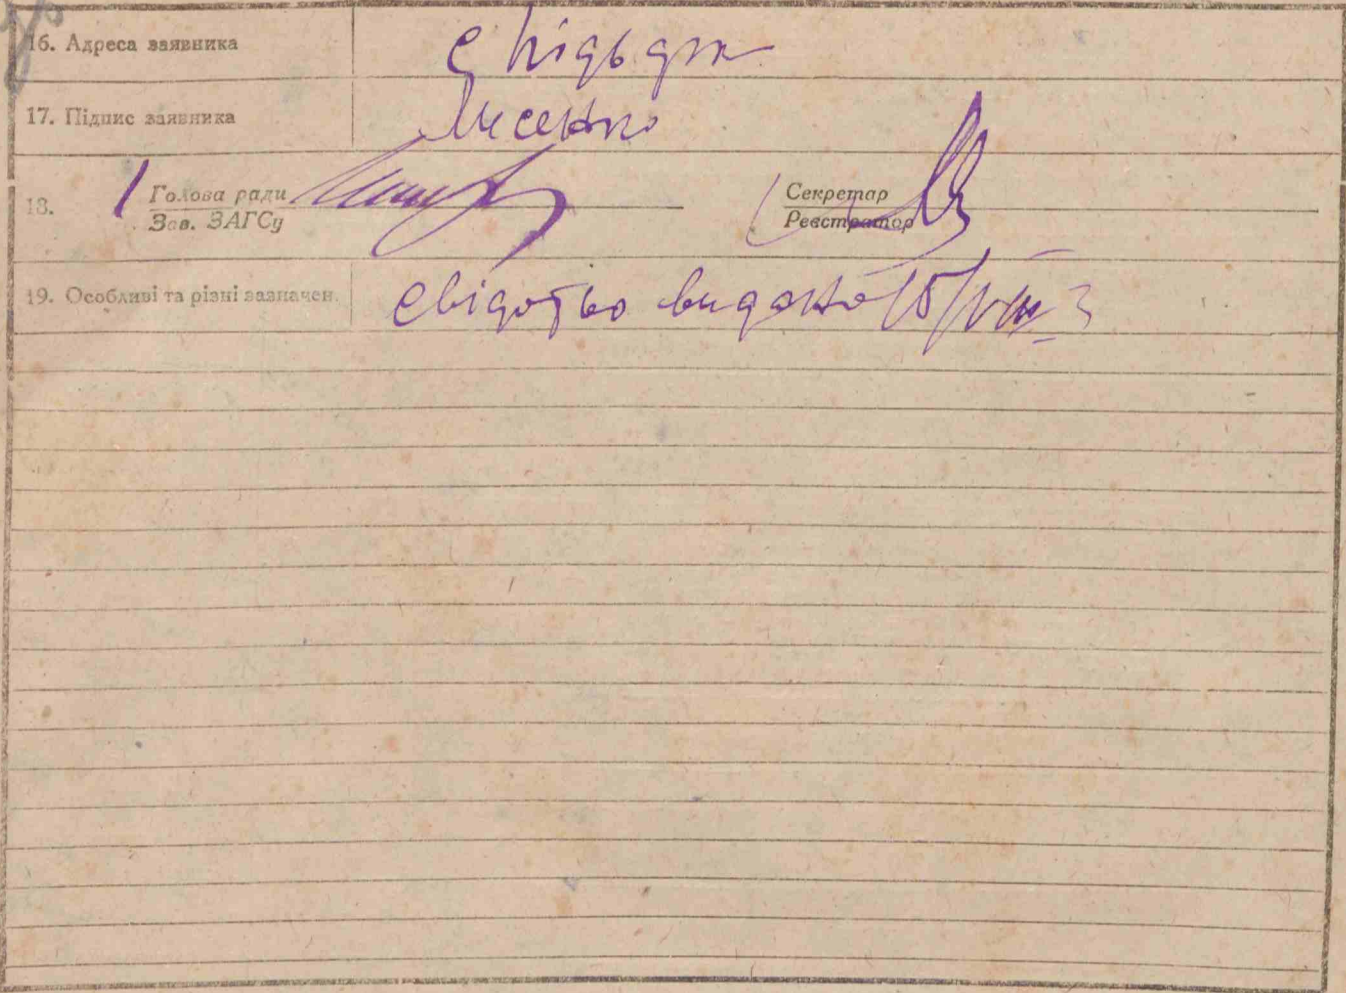 16. Адреса заявника с
17. Підпис заявника Лисенко
18. Голова ради Секретар
Зав. ЗАГСу Реєстратор
19. Особливі та різні зазначен. свідотво видано 15/VIII